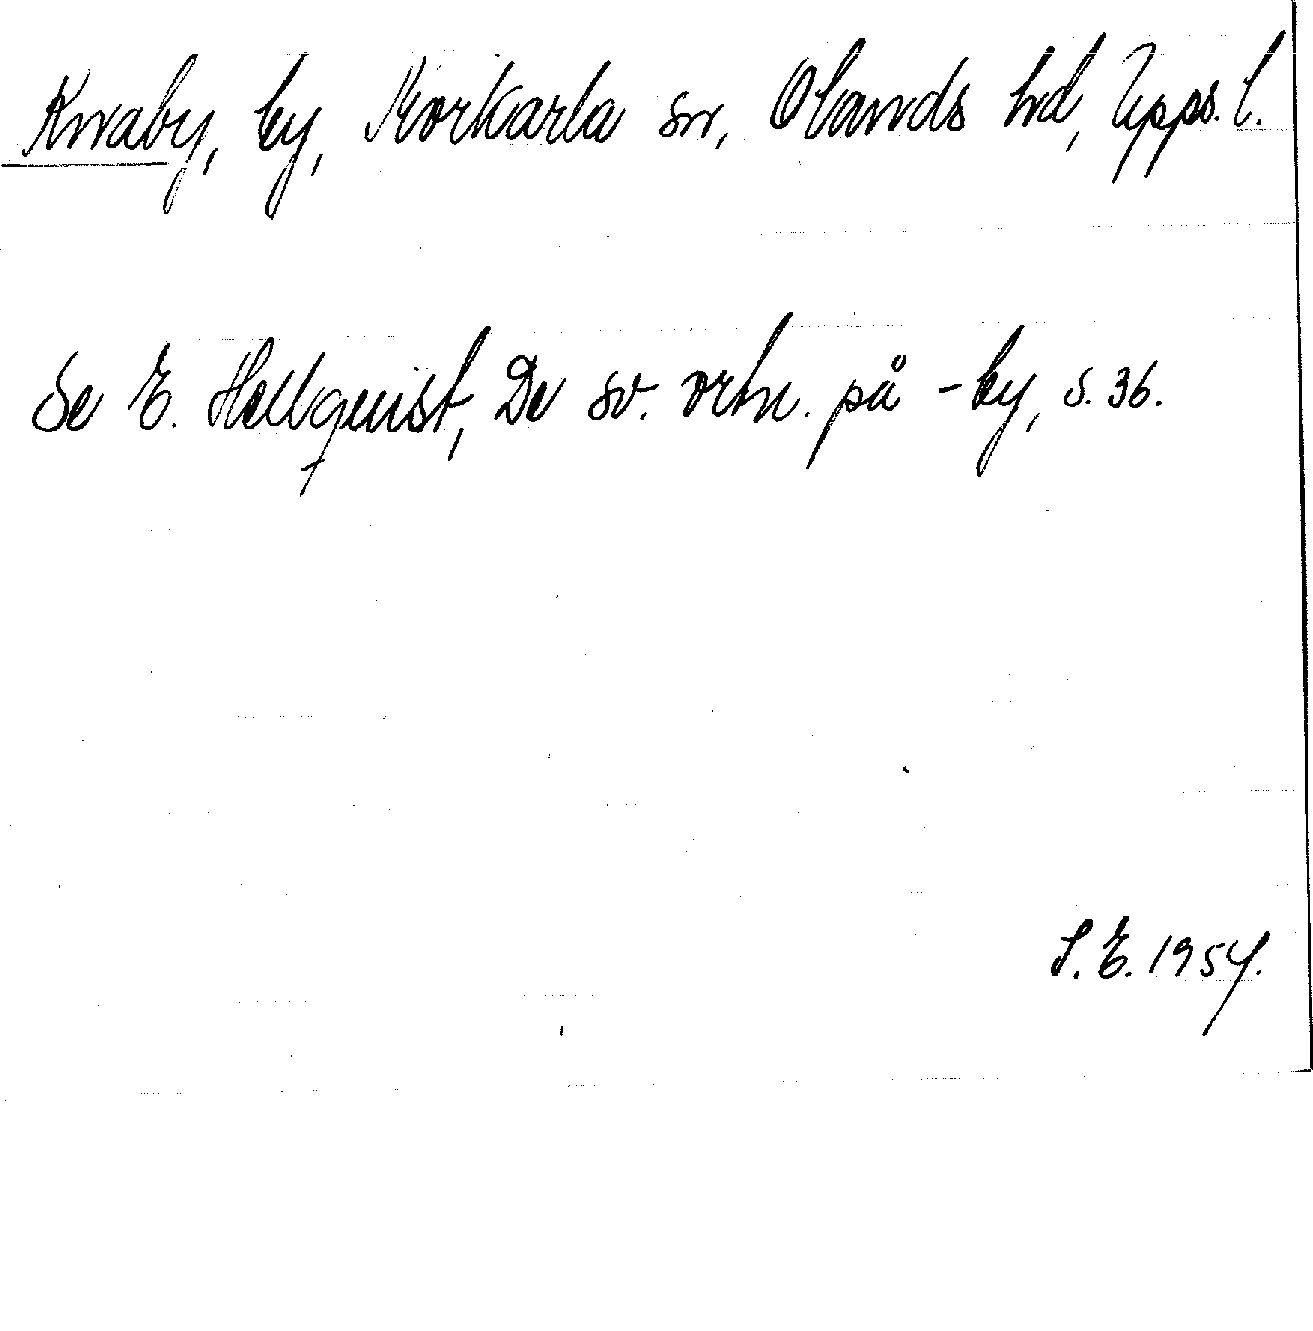 Knaby, by, Morkarla sn, Olands hd, Upps. l.
Se E. Hellquist, De sv. ortn. på -by, s. 36.
S. E. 1954.